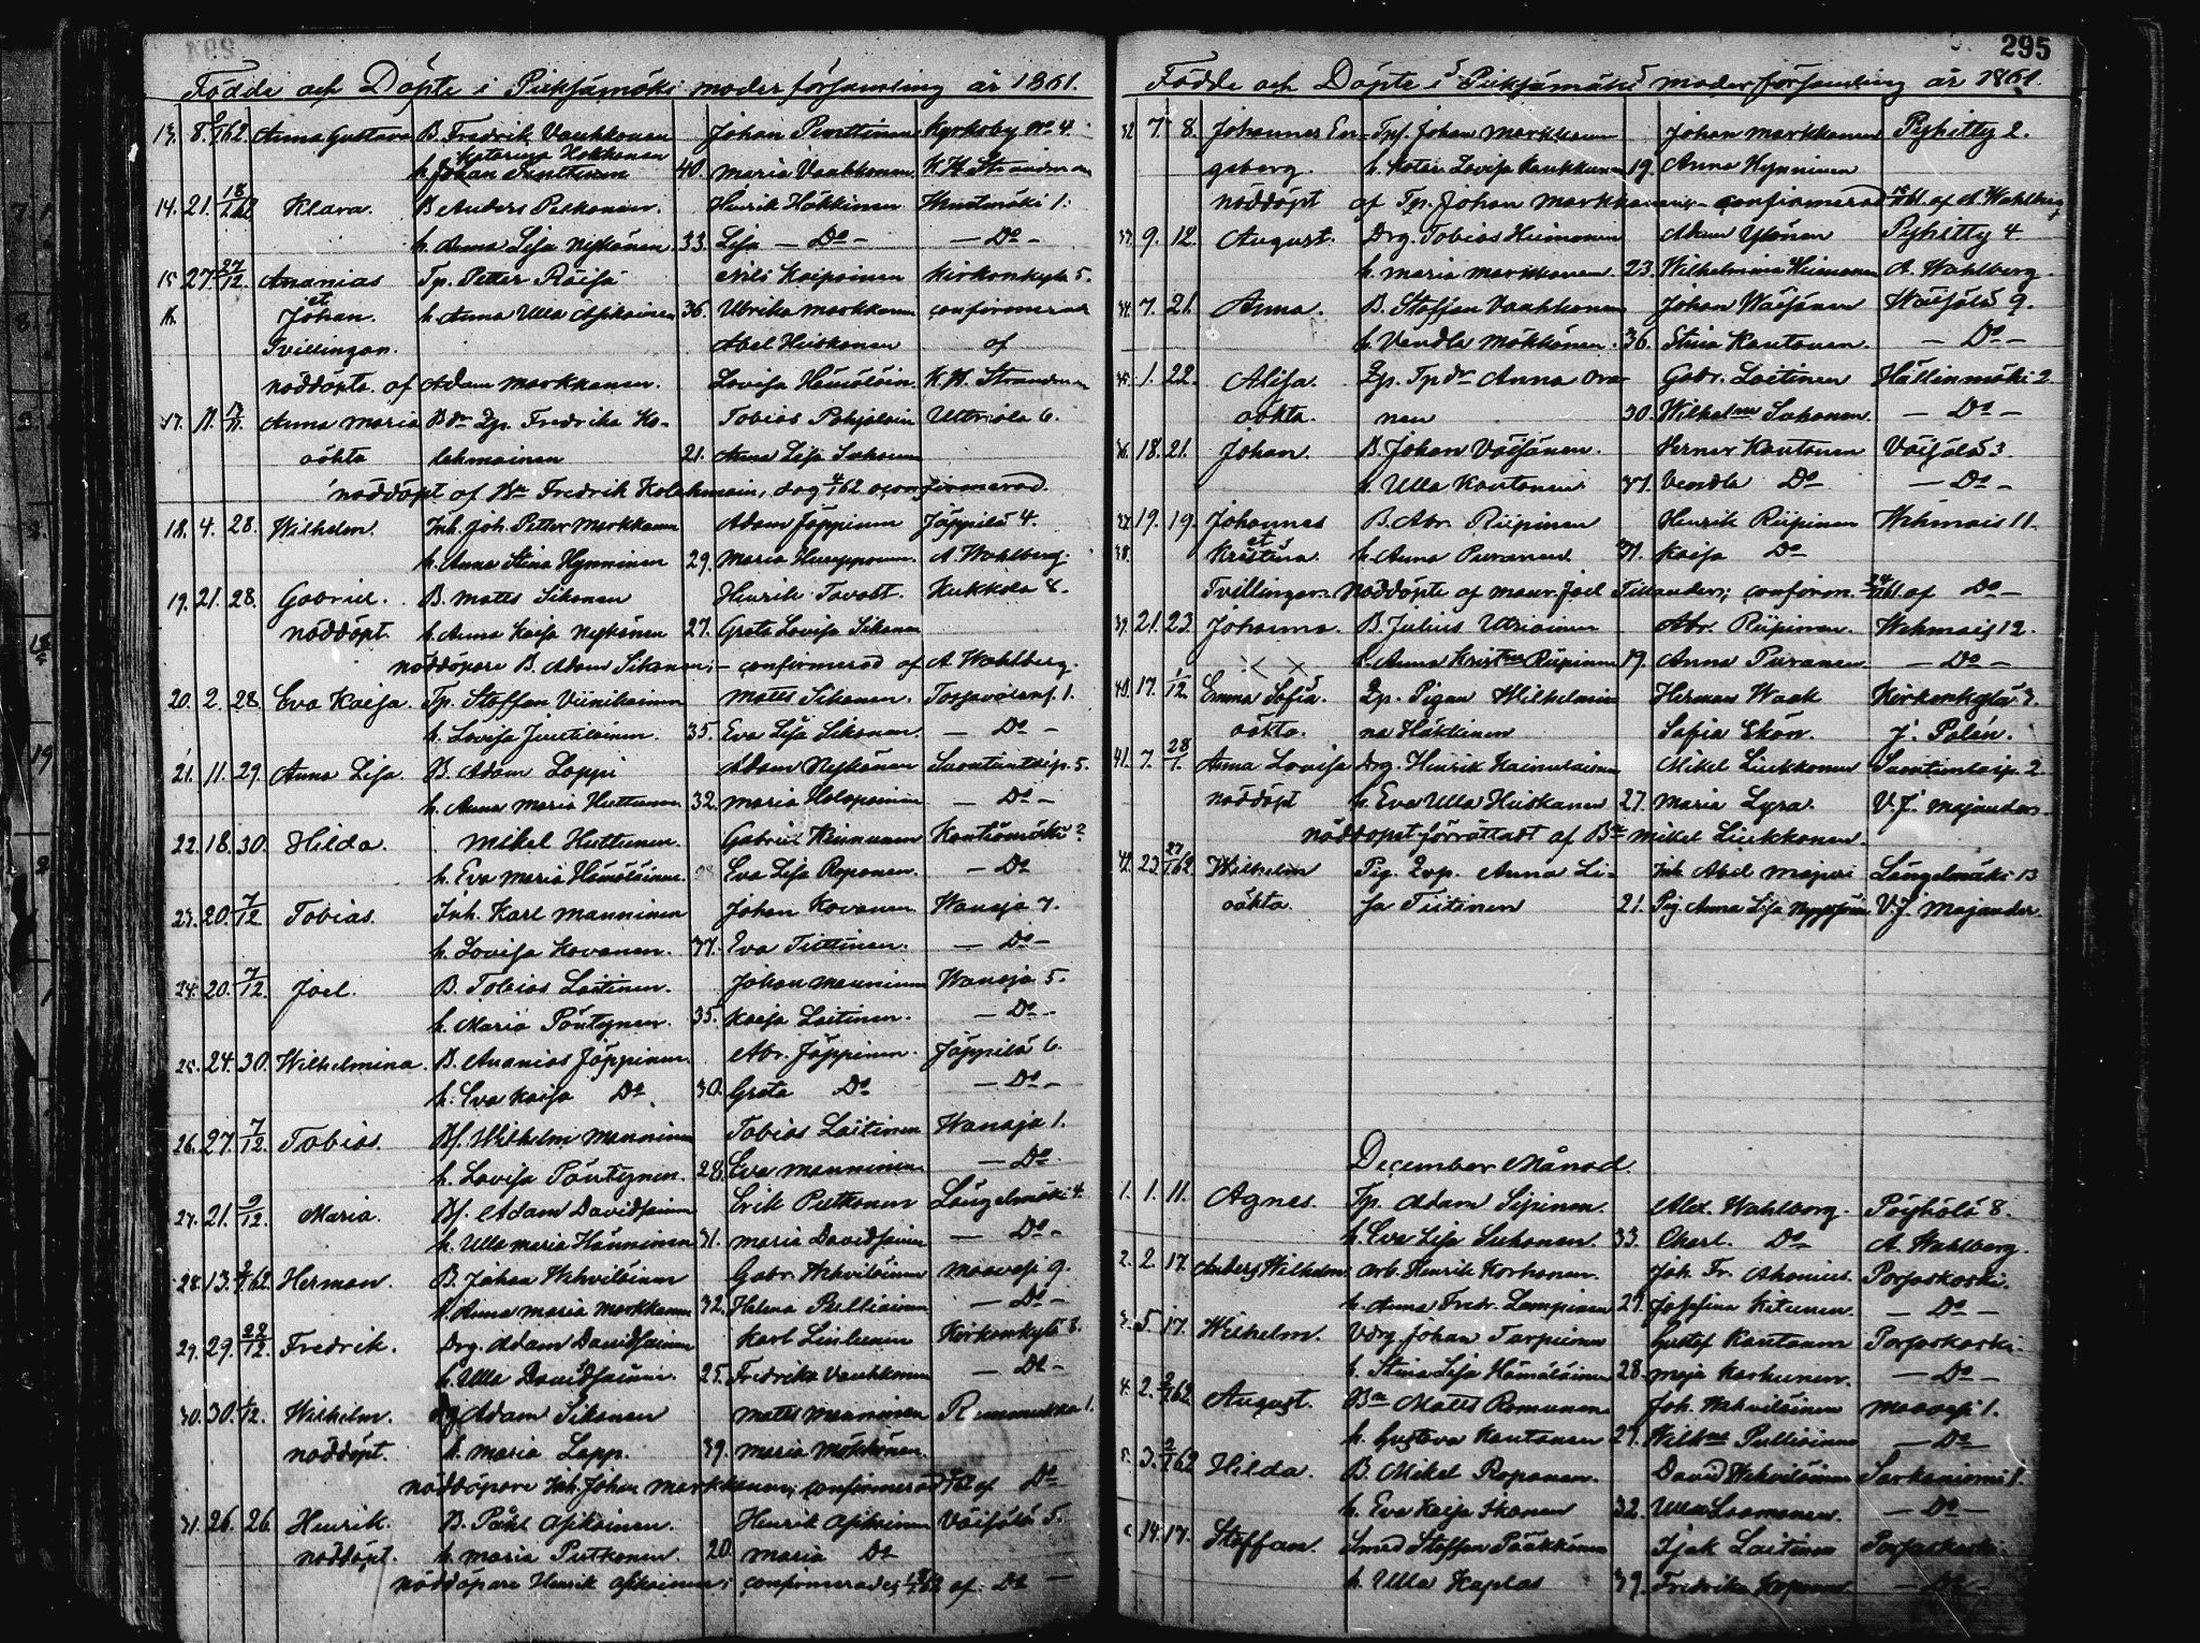 295
Födde och Döpte i Pieksämäki moder församling år 1861.
13. 8. 6/1 62. Anna Gustava B. Fredrik Vauhkonen Johan Purttinen Kyrkoby No 4.
h. Katarina Hokkanen 40. Maria Vauhkonen K. H. Strandman
14. 21. 18/1 62 Klara. B Anders Pelkonen. Henrik Häkkinen 1.
h. Anna Lisa Nykänen 33. Lisa — Do — — Do —
15 27. 27/12. Ananias Tp. Petter Räisä Nils Kaipainen Kirkonkylä 5.
16. et Johan. h. Anna Ulla Asikainen 36. Ulrika Markkanen confirmerad
Tvillingar. Abel Heiskanen af
nöddöpta af Adam Markkanen. Lovisa Hämäläin. K. H. Strandman
17. 11. Anna Maria Bdr Zp. Fredrika Ko- Tobias Pohjalain 6.
oäkta lehmainen 21. Anna Lisa Suhonen
nöddöpt af Bn Fredrik Kolehmain, dog 4/1 62 oconfirmerad.
18. 4. 28. Wilhelm. Inh. Joh. Petter Markkanen Adam Jäppinen Jäppilä 4.
h. Anna Stina Hynninen 29. Maria A. Wahlberg.
19. 21. 28. Gabriel. B. Matts Sikanen Henrik Tavast. Hukkola 8.
nöddöpt. h. Anna Kaisa Nykänen 27. Greta Lovisa Sikanen
nöddöpare B. Adam Sikanen; — confirmerad af A. Wahlberg.
20. 2. 28. Eva Kaisa. Tp. Staffan Viinikainen Matts Sikanen. 1.
h. Lovisa Juutilainen. 35. Eva Lisa Sikanen. — Do —
21. 11. 29. Anna Lisa. B. Adam Lappi Adam Nykänen Suontientaip. 5.
h. Anna Maria Huttunen 32. Maria Holopainen — Do —
22. 18. 30. Hilda. Mikel Huttunen. Gabriel Kinnunen Kontiomäki 2
h. Eva Maria Hämäläinen. 28 Eva Lisa Roponen. — Do
23. 20. 7/12 Tobias. Inh. Karl Manninen Johan Kovanen Wanaja 7.
h. Lovisa Kovanen. 37. Eva Tiittinen. — Do —
24. 20. 7/12. Joel. B. Tobias Laitinen. Johan Manninen Wanaja 5.
h. Maria Pöntynen. 35. Kaisa Laitinen. — Do —
25. 24. 30. Wilhelmina. B. Ananias Jäppinen. Abr. Jäppinen. Jäppilä 6.
h. Eva Kaisa Do. 30. Greta Do — Do —
26. 27. 7/12. Tobias. Bs. Wilhelm Manninen Tobias Laitinen Wanaja 1.
h. Lovisa Pöntynen. 28. Eva Manninen — Do
27. 21. 9/12. Maria. Bs. Adam Davidsainen Erik Putkonen Längelmäki 4.
h. Ulla Maria Hänninen 31. Maria Davidsainen — Do —
28. 13. 62. Herman. B. Johan Wehviläinen Gabr. Wehviläinen 9.
h. Anna Maria Markkanen 32. Helena Pulliainen — Do —
29. 29. 22/12. Fredrik. Drg. Adam Davidsainen Karl Linlunin Kirkonkylä 8.
h. Ulla Davidsainen. 25. Fredrika Vauhkonen — Do —
30. 30. 1/12. Wilhelm. Adam Sikanen Matts Manninen 1.
nöddöpt. h. Maria Lapp. 39. Maria Mökkönen.
nöddöpare Inh. Johan Markkanen; confirmerad af Do
31. 26. 26. Henrik. B. Påhl Asikainen. Henrik Asikainen Väisälä 5.
nöddöpt. h. Maria Putkonen. 20. Maria Do
nöddöpare Henrik Asikainen; confirmerades 62 af Do —
Födde och Döpte i Pieksämäki moderförsamling år 1861.
32 7. 8. Johannes En- Tps. Johan Markkanen Johan Markkanen Pyhitty 2.
gsberg. h. Katar. Lovisa Kaukkunen 19. Anna Hynninen
nöddöpt af Tp. Johan Markkanen; — confirmerad 61. af A. Wahlberg
33. 9. 12. August. Drg. Tobias Heimonen Adam Ylönen Pyhitty 4.
h. Maria Markkanen. 23. Wilhelmina Heimonen A. Wahlberg.
34. 7. 21. Anna. B. Staffan Vauhkonen Johan Wäisänen Wäisälä 9.
h. Vendla Mökkönen. 36. Stina Kautonen. — Do —
35. 1. 22. Alisa. Zp. Tpdr Anna Ora- Gabr. Laitinen Hällinmäki 2
oäkta. nen 30. Wilhelmna Suhonen. — Do —
36. 18. 21. Johan. B. Johan Väisänen. Verner Kautonen Väisälä 3.
h. Ulla Kautonen 37. Vendla Do — Do —
37. 19. 19. Johannes B. Abr. Riipinen Henrik Riipinen Wehmais 11.
38. et Kristina. h. Anna Puranen 31. Kaisa Do
Tvillingar. Nöddöpte af maur. Joel Tillander; confirm. 61 af Do —
39. 21. 23. Johanna. B. Julius Utriainen Abr. Riipinen. Wehmais 12.
h. Anna Kristna Riipinen 19. Anna Puranen — Do —
40. 17. 1/12. Emma Sofia. Zp. Pigan Wilhelmi- Herman Waak Kirkonkylä 3.
oäkta. na Häklinen Sofia Ekön. J. Polén.
41. 7. 28/1. Anna Lovisa Drg. Henrik Kainulainen Mikel Liukkonen Suontientaip. 2.
nöddöpt h. Eva Ulla Heiskanen 27. Maria Lyra. V. J. Majander.
nöddopet förrättadt af Bn Mikel Liukkonen.
42. 23. 27/1 62. Wilhelm Pig. Zvp. Anna Li- Inh. Abel Majuri Längelmäki 13
oäkta. sa Tiitinen 21. Pig. Anna Lisa V. J. Majander.
December Månad.
1. 1. 11. Agnes. Tp. Adam Sipinen. Alex. Wahlberg. Pöyhölä 8.
h. Eva Lisa Suhonen. 33. Charl. Do A. Wahlberg.
2. 2. 17. Anders Wilhelm. Arb. Henrik Korhonen. Joh. Fr. Ahonius. Porsaskoski.
h. Anna Fredr. Lampinen 27. Josefina Kitunen. — Do —
3. 5. 17. Wilhelm. Vdrg Johan Tarpinen Gustaf Kautonen Porsaskoski.
h. Stina Lisa Hämäläinen 28. Maja Karhunen. — Do —
4. 2. 62. August. Bn Matts Romunen Joh. Wehviläinen 1.
h. Gustava Kautonen 27. Wilhna Pulliainen — Do —
5. 3. 62 Hilda. B. Mikel Roponen. David Wehviläinen Sarkaniemi 1.
h. Eva Kaisa Ikonen 32. Ulla Laamanen. — Do —
6. 14. 17. Staffan. Smed Staffan Pääkkönen Isak Laitinen Porsaskoski.
h. Ulla Kaplas 39. Fredrika — Do —